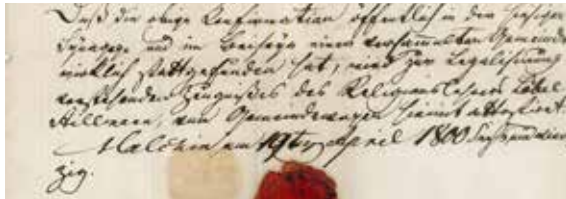 Daß die obige Confirmation öffentlich in der hiesigen
Synagoge und im Beiseyn einer versammelten Gemeinde
wirklich stattgefunden hat, wird zur Legalisirung
vorstehenden Zeugnißes des Religionslehrers Löbel
von Gemeindewegen hiemit attestirt.
Malchin am 19ten April 1800 Sechs und vier
zig.